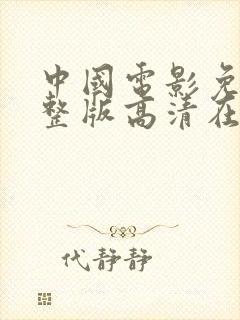 中國電影免
整版高清在
代静静